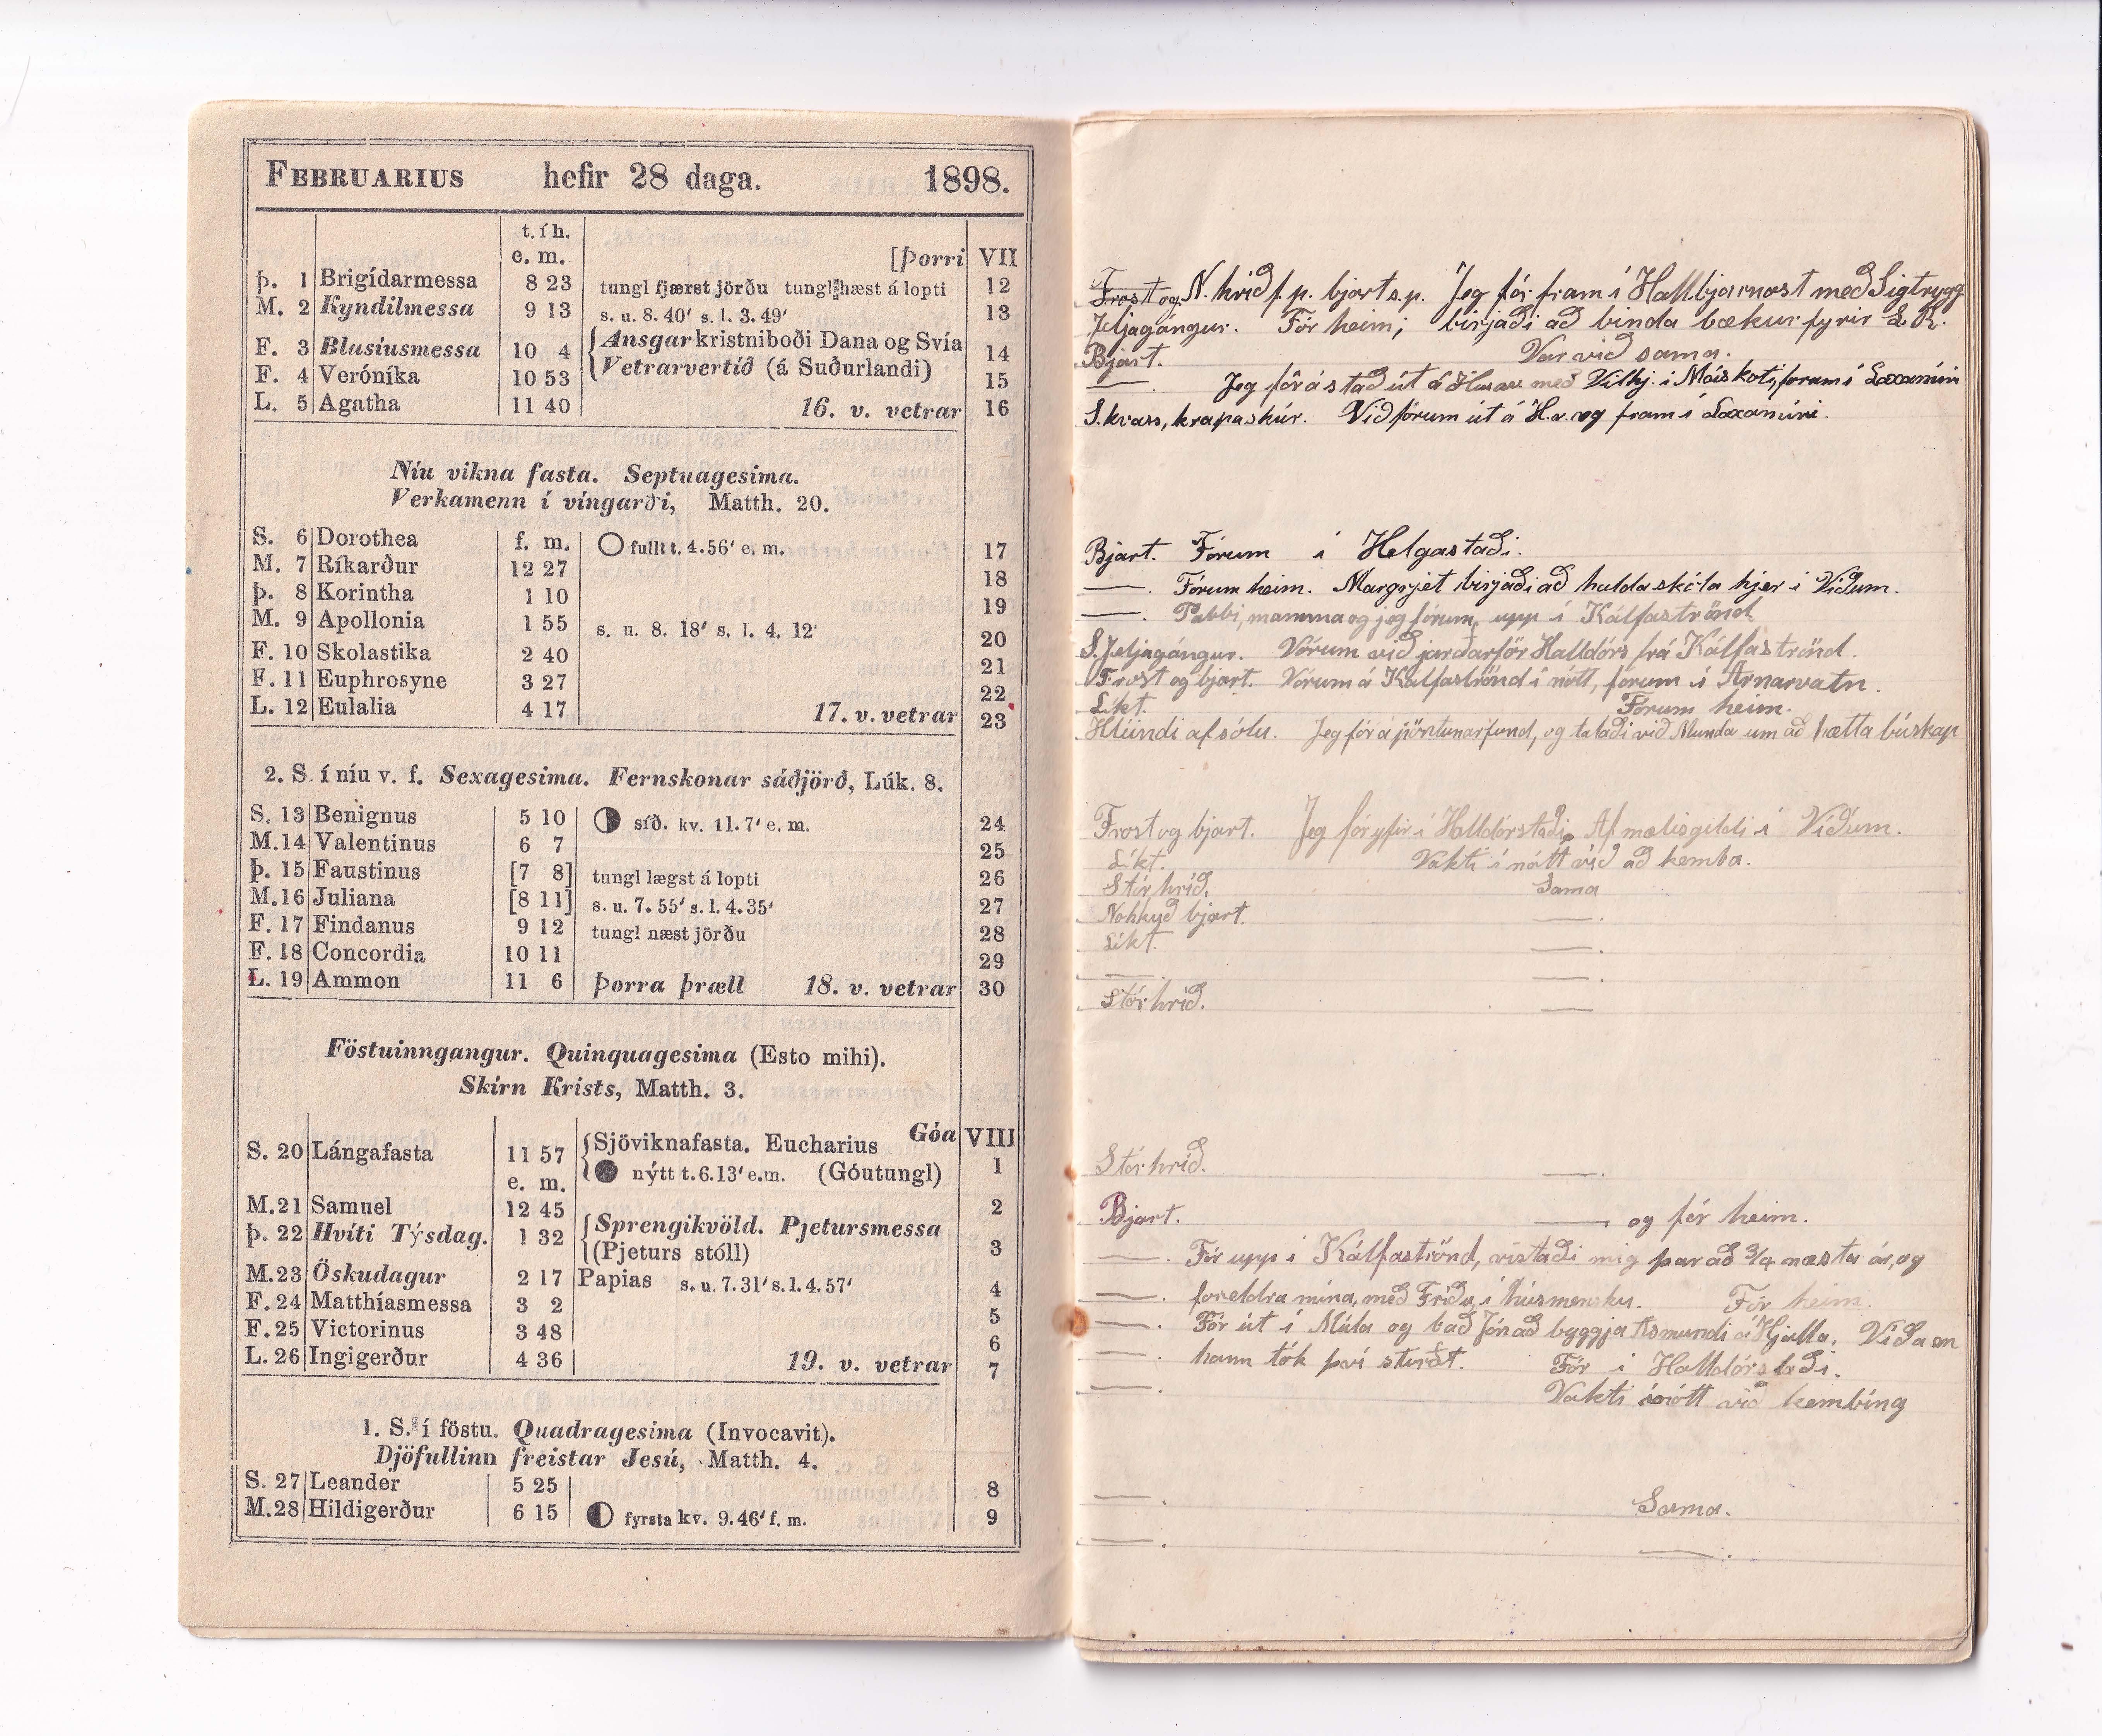 FEBRUARIUS hefir 28 daga. 1898.
t. í h.
e. m. [Þorri VII
Þ. 1 Brigídarmessa 8 23 tungl fjærst jörðu tungl hæst á lopti 12
M. 2 Kyndilmessa 9 13 s. u. 8. 40' s. l. 3. 49' 13
F. 3 Blasíusmessa 10 4 Ansgar kristniboði Dana og Svía 14
F. 4 Verónika 10 53 Vetrarvertíð (á Suðurlandi) 15
L. 5 Agatha 11 40 16. v. vetrar 16
Níu vikna fasta. Septuagesima.
Verkamenn í víngarði, Matth. 20.
S. 6 Dorothea f. m. fullt t. 4. 56' e. m. 17
M. 7 Ríkarður 12 27 18
Þ. 8 Korintha 1 10 19
M. 9 Apollonia 1 55 s. u. 8. 18' s. l. 4. 12' 20
F. 10 Skolastika 2 40 21
F. 11 Euphrosyne 3 27 22
L. 12 Eulalia 4 17 17. v. vetrar 23
2. S. í níu v. f. Sexagesima. Fernskonar sáðjörð, Lúk. 8.
S. 13 Benignus 5 10 síð. kv. 11. 7' e. m. 24
M. 14 Valentinus 6 7 25
Þ. 15 Faustinus [7 8] tungl lægst á lopti 26
M. 16 Juliana [8 11] s. u. 7. 55' s. l. 4. 35' 27
F. 17 Findanus 9 12 tungl næst jörðu 28
F. 18 Concordia 10 11 29
L. 19 Ammon 11 6 Þorra þræll 18. v. vetrar 30
Föstuinngangur. Quinquagesima (Esto mihi).
Skírn Krists, Matth. 3.
Góa VIII
S. 20 Lángafasta 11 57 Sjöviknafasta. Eucharius
e. m. nýtt t. 6. 13' e. m. (Góutungl) 1
M. 21 Samuel 12 45 2
Þ. 22 Hvíti Týsdag. 1 32 Sprengikvöld. Pjetursmessa (Pjeturs stóll) 3
M. 23 Öskudagur 2 17 Papias s. u. 7. 31' s. l. 4. 57' 4
F. 24 Matthíasmessa 3 2 5
F. 25 Victorinus 3 48 6
L. 26 Ingigerður 4 36 19. v. vetrar 7
1. S. í föstu. Quadragesima (Invocavit).
Djöfullinn freistar Jesú, Matth. 4.
S. 27 Leander 5 25 8
M. 28 Hildigerður 6 15 fyrsta kv. 9. 46' f. m. 9
Frost og N. hríð f. p. bjart s. p. Jeg fór fram í Hallbjarnast með Sigtrygg
Jeljagángur. Fór heim; birjaði að binda bækur fyrir
Bjart. Var við sama.
—. Jeg fór á stað út á Húsav með Vilhj. í Máskoti, forum í Laxamíri
S. hvass, krapaskúr. Við fórum út á H.v. og fram í Laxamíri.
Bjart. Fórum í Helgastaði.
—. Fórum heim. Margrjet birjaði að halda skóla hjer í Víðum.
—. Pabbi, mamma og jeg fórum upp í Kálfaströnd
S. Jeljagángur. Vórum við jarðarför Halldórs frá Kálfaströnd.
Frost og bjart. Vórum á Kálfaströnd í nótt, fórum í Arnarvatn.
Líkt. Fórum heim.
Hlúindi af sólu. Jeg fór á pöntunarfund, og talaði við Munda um að hætta búskap
Frost og bjart. Jeg fór yfir í Halldórstaði. Afmælisgildi í Víðum.
Líkt. Vakti í nótt við að kemba.
Stór hríð. Sama
Nokkuð bjart. —.
Líkt. —.
—. —.
Stór hríð. —.
Stór hríð. —.
Bjart. — og fór heim.
—. Fór upp í Kálfaströnd, vistaði mig þar að 3/4 næsta ár, og
—. foreldra mína, með Fríðu, í húsmensku. Fór heim.
—. Fór út í Múla og bað Jón að byggja Ásmundi á Hjalla, Víða en
—. hann tók því stirðt. Fór í Halldórstaði.
—. Vakti í nótt við kembíng
—. Sama.
—. —.